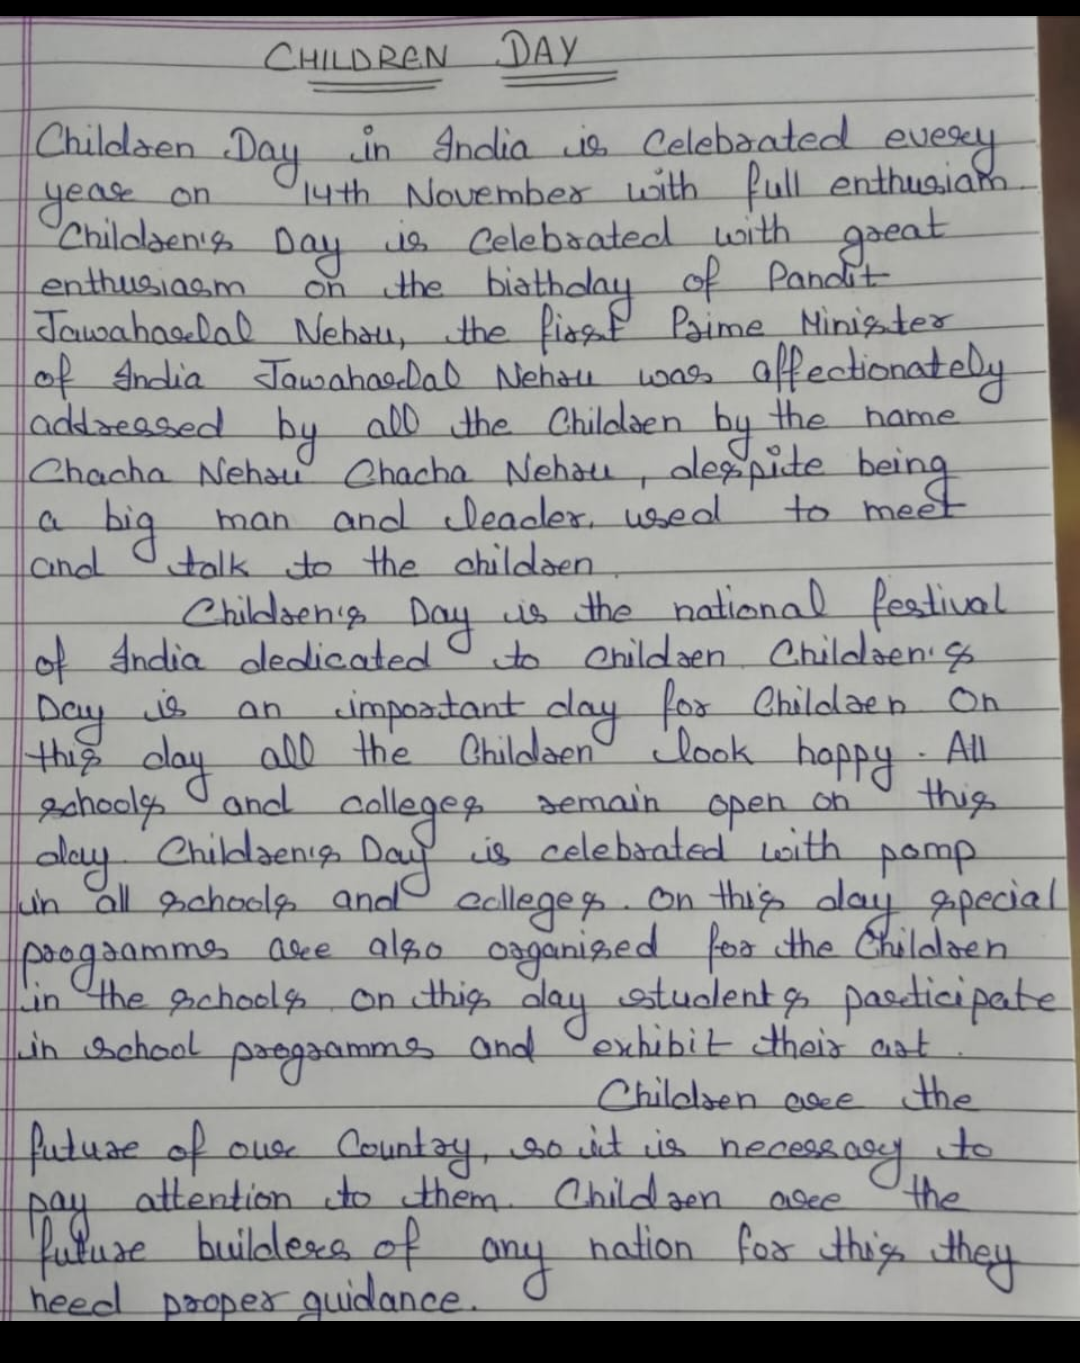 CHILDREN DAY
Children Day in India is Celebrated every
year on 14th November with full enthusiam.
Children's Day is Celebrated with great
enthusiasm on the birthday of Pandit
Jawaharlal Nehru, the first Prime Minister
of India Jawaharlal Nehru was affectionately
addressed by all the Children by the name
Chacha Nehru Chacha Nehru, despite being
a big man and leader, used to meet
and talk to the children.
Children's Day is the national festival
of India dedicated to children. Children's
Day is an important day for Children On
this day all the Children look happy. All
schools and colleges remain open on this
day. Children's Day is celebrated with pomp
in all schools and colleges. On this day special
programms are also organised for the Children
in the schools. on this day students participate
in school programms and exhibit their art.
Children are the
future of our Country, so it is necessary to
pay attention to them. Children are the
future builders of any nation for this they
need proper guidance.